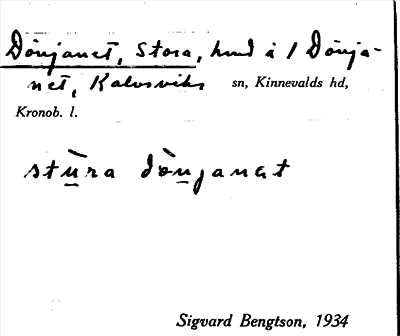 Dönjanet, Stora, hmd å 1 Dönja-
net, Kalvsviks sn, Kinnevalds hd,
Kronob. l.
stu̠̇ra dònjanat
Sigvard Bengtson, 1934